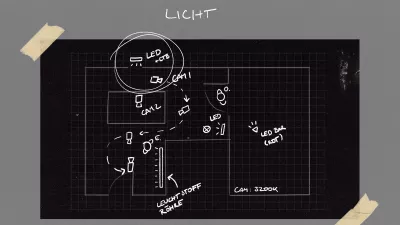 LICHT
LED
+CTB
CAM 1
CAM 2
LED
LED BAR
(ROT)
LEUCHTSTOFF
RÖHRE
CAM: 3200K